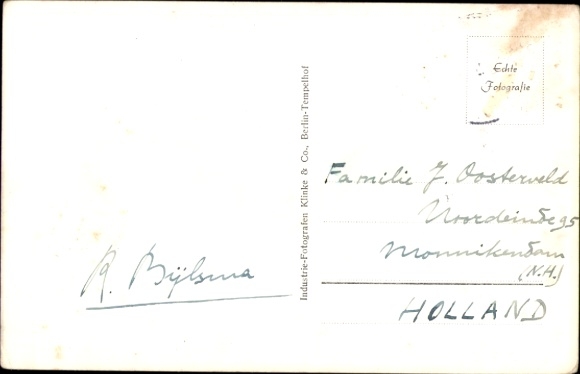 Echte
Fotografie
Industrie-Fotografen Klinke & Co., Berlin-Tempelhof
Familie J. Oosterveld
Noordeinde 95
Monnikendam
(N.H.)
HOLLAND
R. Bijlsma